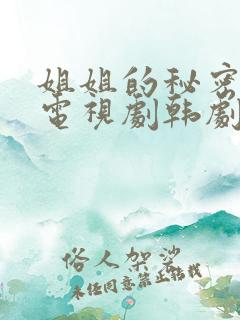 姐姐的秘密
電視劇韩劇
俗人架裟
未任同意禁止轉载